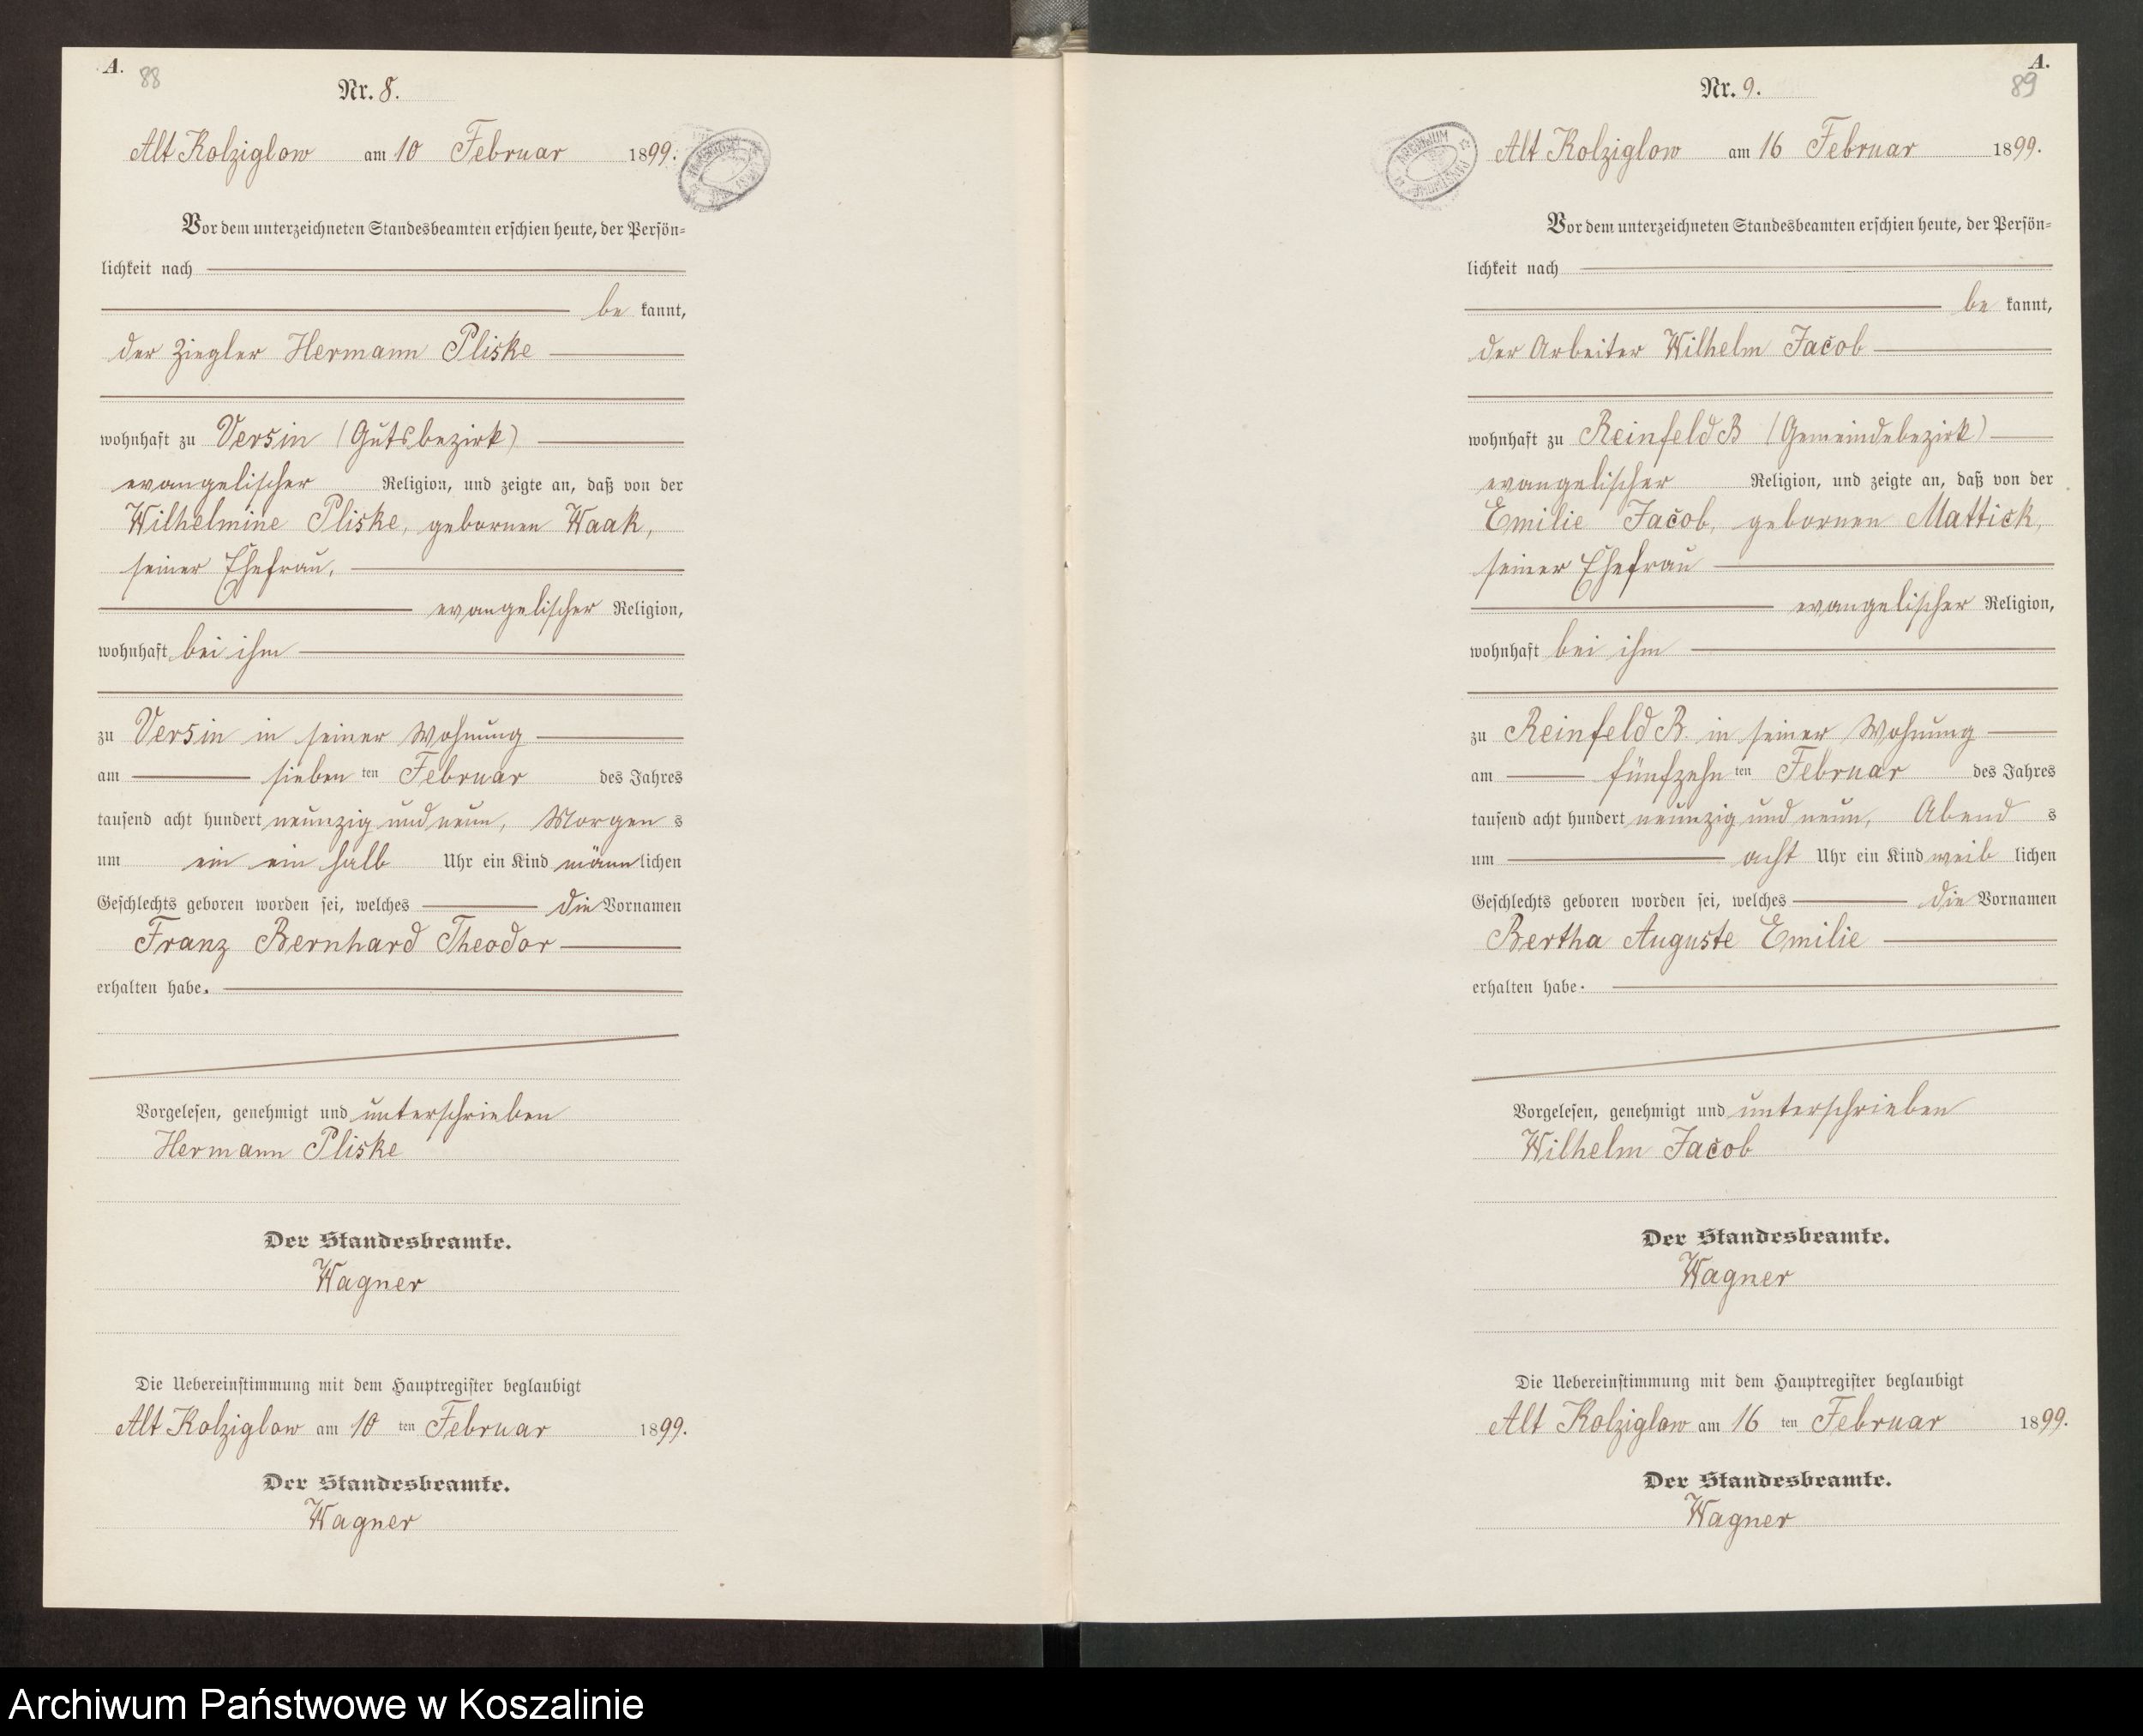 A.
88
Nr. 8.
Alt Kolziglow am 10 Februar 1899.
Vor dem unterzeichneten Standesbeamten erschien heute, der Persön-
lichkeit nach
be kannt,
der Ziegler Hermann Pliske
wohnhaft zu Versin (Gutsbezirk)
evangelischer Religion, und zeigte an, daß von der
Wilhelmine Pliske, gebornen Waak,
seiner Ehefrau,
evangelischer Religion,
wohnhaft bei ihm
zu Versin in seiner Wohnung
am sieben ten Februar des Jahres
tausend acht hundert neunzig und neun, Morgen s
um ein ein halb Uhr ein Kind männlichen
Geschlechts geboren worden sei, welches die Vornamen
Franz Bernhard Theodor
erhalten habe.
Vorgelesen, genehmigt und unterschrieben
Hermann Pliske
Der Standesbeamte.
Wagner
Die Uebereinstimmung mit dem Hauptregister beglaubigt
Alt Kolziglow am 10 ten Februar 1899.
Der Standesbeamte.
Wagner
A.
89
Nr. 9.
ARCHIWUM
Alt Kolziglow am 16 Februar 1899.
Vor dem unterzeichneten Standesbeamten erschien heute, der Persön-
lichkeit nach
be kannt,
der Arbeiter Wilhelm Jacob
wohnhaft zu Reinfeld B (Gemeindebezirk)
evangelischer Religion, und zeigte an, daß von der
Emilie Jacob, gebornen Mattick,
seiner Ehefrau
evangelischer Religion,
wohnhaft bei ihm
zu Reinfeld B. in seiner Wohnung
am fünfzehn ten Februar des Jahres
tausend acht hundert neunzig und neun, Abend s
um acht Uhr ein Kind weib lichen
Geschlechts geboren worden sei, welches die Vornamen
Bertha Auguste Emilie
erhalten habe.
Vorgelesen, genehmigt und unterschrieben
Wilhelm Jacob
Der Standesbeamte.
Wagner
Die Uebereinstimmung mit dem Hauptregister beglaubigt
Alt Kolziglow am 16 ten Februar 1899.
Der Standesbeamte.
Wagner
Archiwum Państwowe w Koszalinie